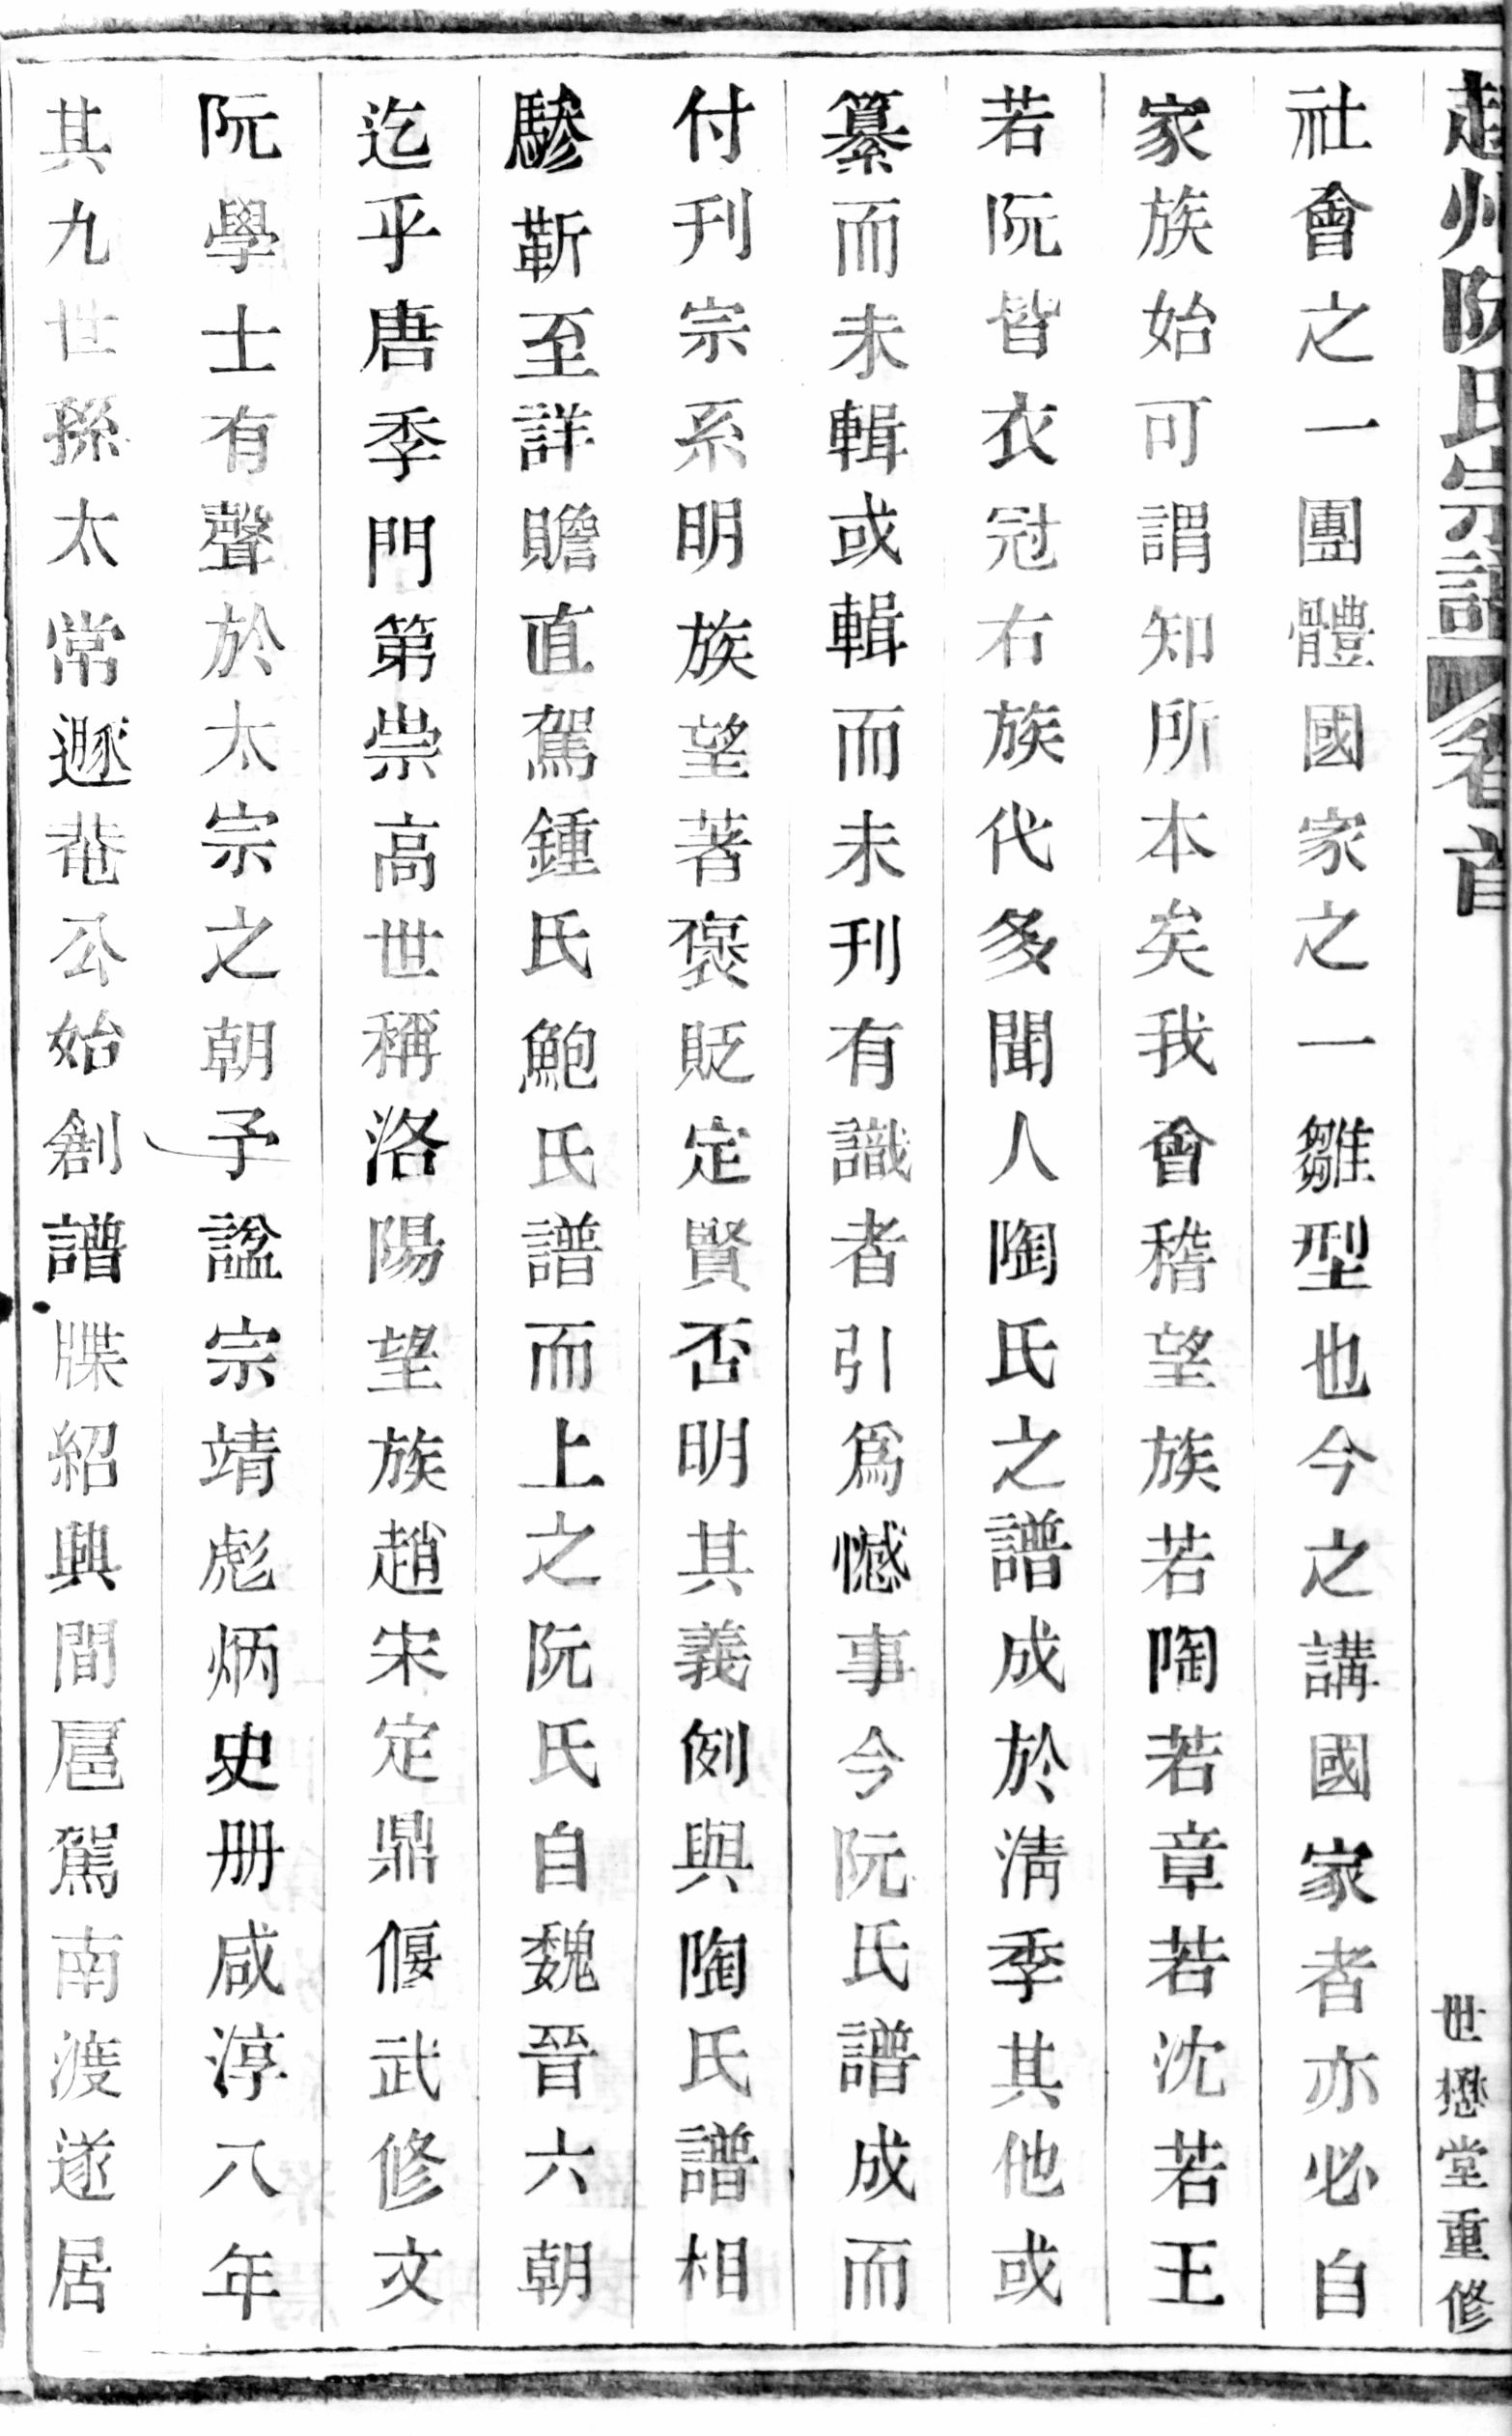 越州阮氏宗譜 卷首 世懋堂重修
社會之一團體國家之一雛型也今之講國家者亦必自
家族始可謂知所本矣我會稽望族若陶若章若沈若王
若阮皆衣冠右族代多聞人陶氏之譜成於淸季其他或
纂而未輯或輯而未刊有識者引爲憾事今阮氏譜成而
付刊宗系明族望著褒貶定賢否明其義例與陶氏譜相
驂靳至詳贍直駕鍾氏鮑氏譜而上之阮氏自魏晉六朝
迄乎唐季門第崇高世稱洛陽望族趙宋定鼎偃武修文
阮學士有聲於太宗之朝予諡宗靖彪炳史册咸淳八年
其九世孫太常遯菴公始創譜牒紹興間扈駕南渡遂居